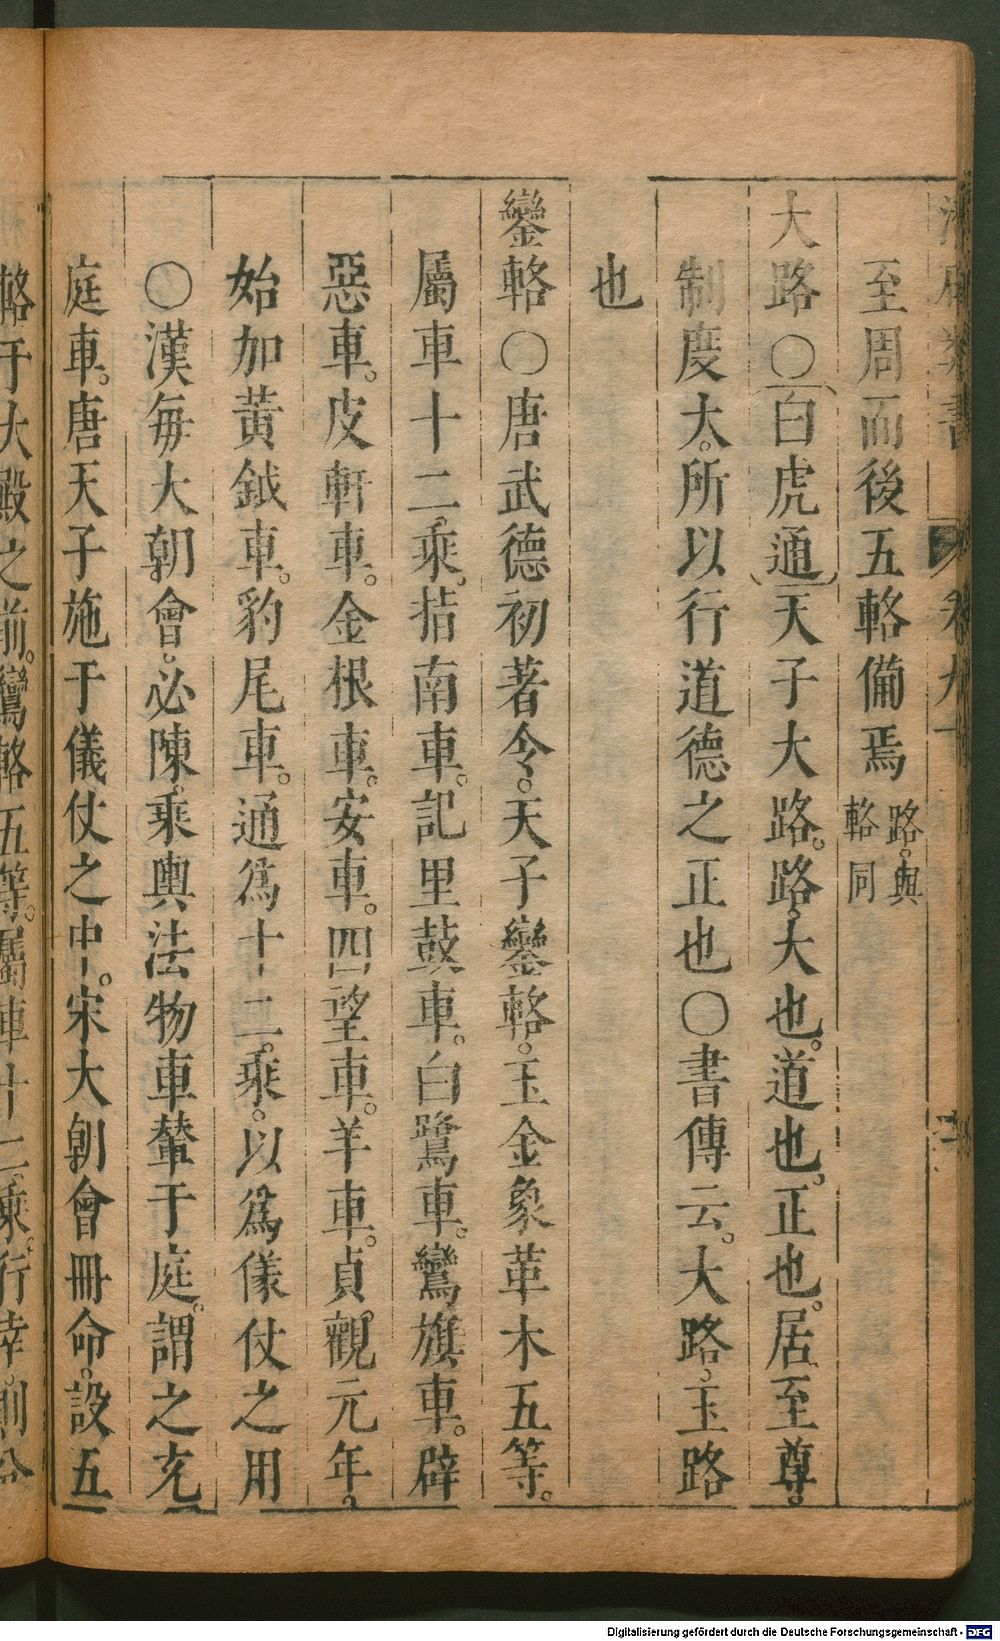 卷九
至周而後五輅備焉路與輅同
大路〇白虎通天子大路。路。大也。道也。正也。居至尊。
制度大。所以行道德之正也〇書傳云。大路。玉路
也
鑾輅〇唐武德初著令。天子鑾輅。玉金象革木五等。
屬車十二乘。指南車。記里鼓車。白鷺車。鸞旗車。辟
惡車。皮軒車。金根車。安車。四望車。羊車。貞觀元年。
始加黃鉞車。豹尾車。通爲十二乘。以爲儀仗之用
〇漢每大朝會。必陳乘輿法物車輦于庭。謂之充
庭車。唐天子施于儀仗之中。宋大朝會冊命。設五
輅于大殿之前。鸞輅五等。屬車十二乘。行幸。則分
Digitalisierung gefördert durch die Deutsche Forschungsgemeinschaft - DFG